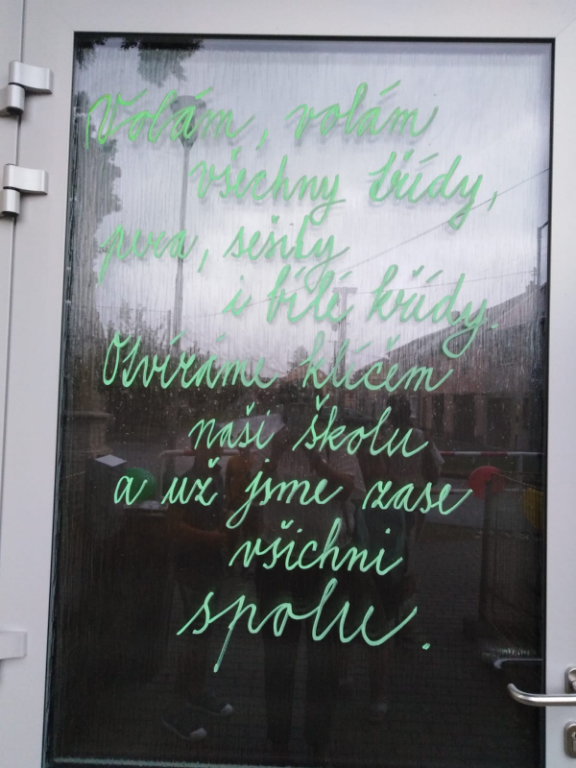 Volám, volám
všechny třídy,
pera, sešity
i bílé křídy.
Otvíráme klíčem
naši školu
a už jsme zase
všichni
spolu.